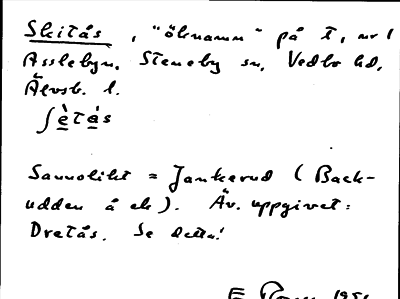 Skitås, "öknamn" på t, nr 1
Asslebyn, Steneby sn, Vedbo hd,
Älvsb. l.
ʃètás
Sannolikt = Jankerud (Back-
udden å ek). Äv. uppgivet:
Dretås. Se detta!
E